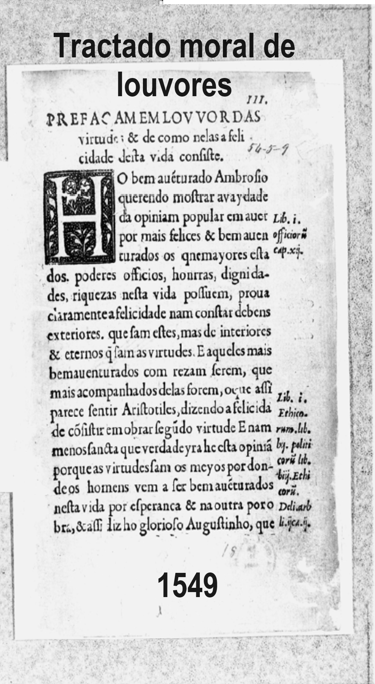 Tractado moral de
louvores
III.
PREFAÇAM EM LOVVOR DAS
virtudes & de como nelas a feli-
cidade desta vida consiste.
54-5-9
HO bem auẽturado Ambrosio
querendo mostrar a vaydade
da opiniam popular em auer
por mais felices & bem auen
turados os q̃ne mayores esta
dos. poderes officios, honrras, digni da-
des, riquezas nesta vida possuem, proua
claramente a felicidade nam constar de bens
exteriores. que sam estes, mas de interiores
& eternos q̃ sam as virtudes. E aqueles mais
bemauenturados com rezam serem, que
mais acompanhados delas forem, o que assi
parece sentir Aristotiles, dizendo a felicida
de cõsistir em obrar segũdo virtude E nam
menos sancta que verdadeyra he esta opiniã
porque as virtudes sam os meyos por don-
de os homens vem a ser bem auẽturados
nesta vida por esperança & na outra por o
bra, & assi diz ho glorioso Augustinho, que
Lib. i.
officiorũ
cap. xij.
Lib. i.
Ethico-
rum. lib.
politi
corũ lib.
Ethi
corũ.
De li. arb
1549